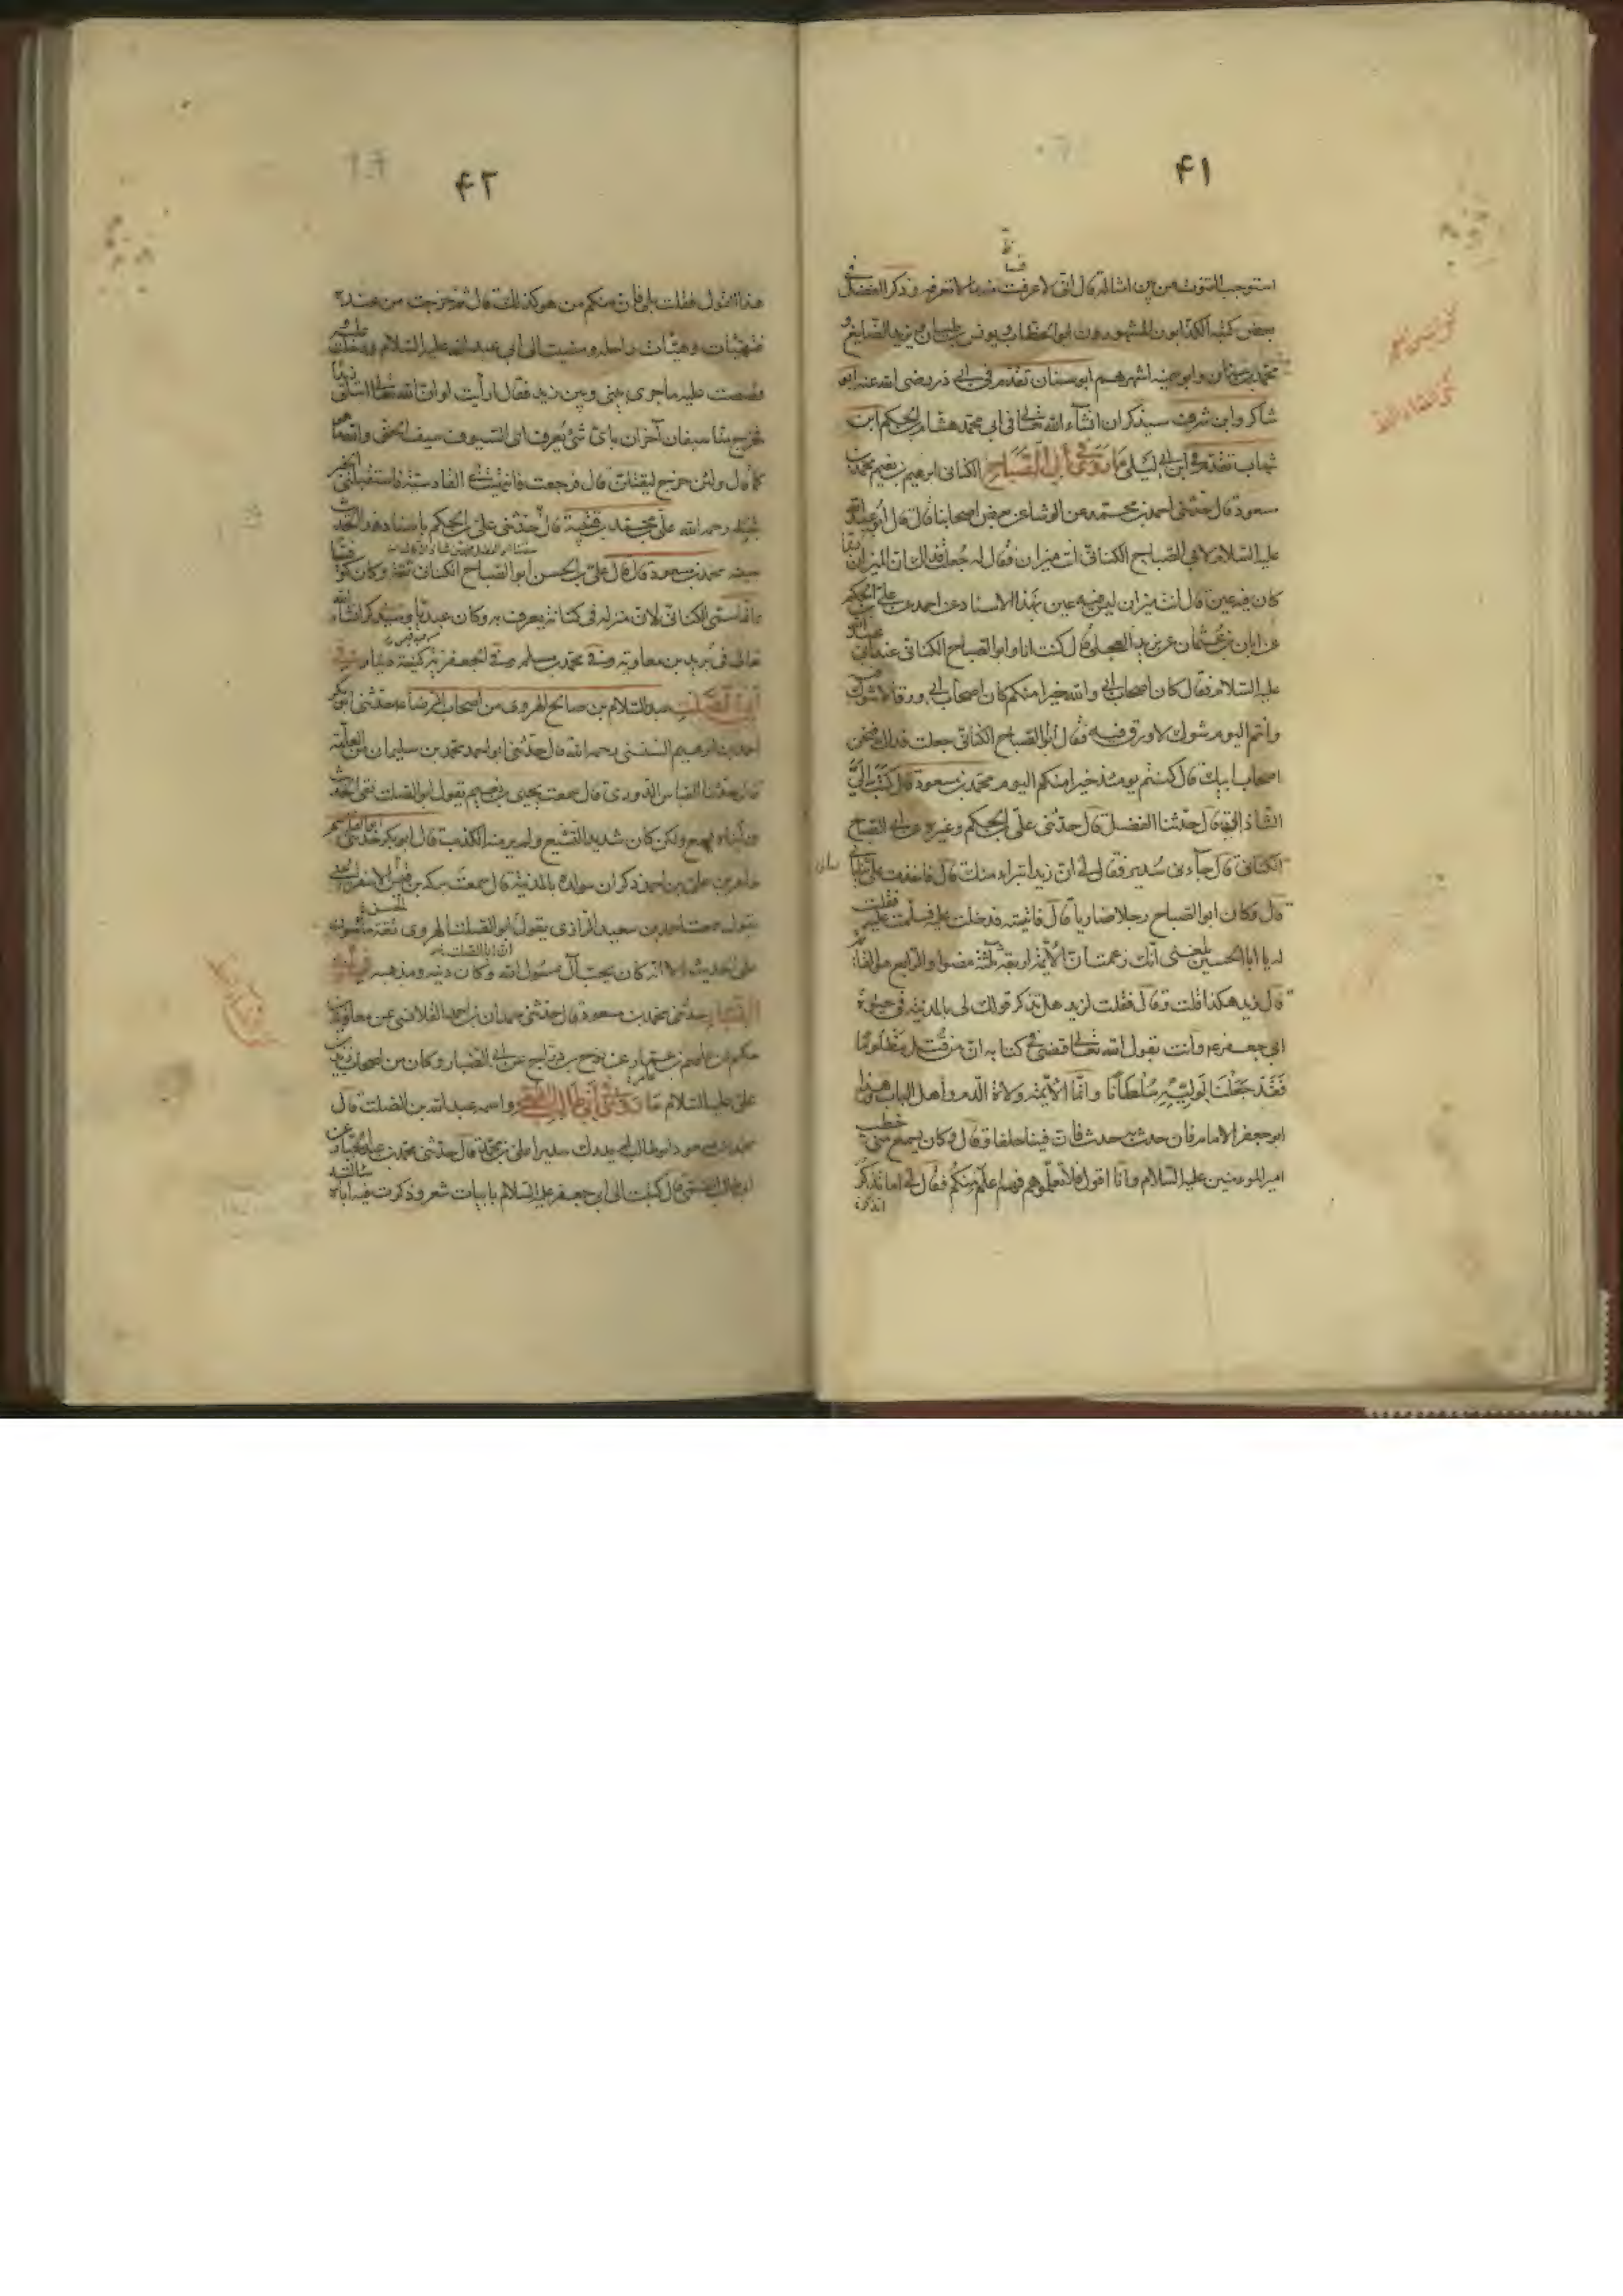 ۴۱
استوجب القنوت من بين اشاله قال انى لاعرفت منه ما لا تعرفه وذكر الفضل فى
بعض كتبه الكذابون المشهورون ابو الخطاب ويونس بن ظبيان ويزيد الصايغ و
محمد بن سنان وابو سمينه اشهرهم ابو سنان تقدم فى ابى ذر رضى الله عنه ابو
شاكر وابن شرف سيذكران انشاء الله تعالى فى ابى محمد هشام بن الحكم ابن
شهاب تقدم فى ابن ابى ليلى ما روى فى أبى الصباح الكنانى ابرهيم بن نعيم محمد بن
مسعود قال حدثنى احمد بن محمد عن الوشا عن بعض اصحابنا قال قال ابو عبد الله
عليه السلام لابى الصباح الكنانى انت ميزان فقال له جعلت فداك ان الميزان ربما
كان فيه عين قال انت ميزان ليس فيه عين بهذا الاسناد عن احمد عن على بن الحكم
عن ابان بن عثمان عن بريد العجلى قال كنت انا وابو الصباح الكنانى عند ابى عبد الله
عليه السلام فقال كان اصحاب ابى والله خيرا منكم كان اصحاب ابى ورقا لا شوك فيه
وانتم اليوم شوك لا ورق فيه فقال ابو الصباح الكنانى جعلت فداك فنحن
اصحاب ابيك قال كنتم يومئذ خيرا منكم اليوم محمد بن مسعود قال كتب الى
الشاذانى قال حدثنا الفضل قال حدثنى على بن الحكم وغيره عن ابى الصباح
الكنانى قال جاءنى سدير فقال لى ان زيدا تبرا منك قال فاخذت على ثيابى
قال وكان ابو الصباح رجلا ضاريا قال فاتيته فدخلت عليه فسلمت عليه فقلت
له يا ابا الحسين بلغنى انك زعمت ان الائمة اربعة ثلثة مضوا والرابع هو القائم
قال زيد هكذا قلت قال فقلت لزيد هل تذكر قولك لى بالمدينة فى حيوة
ابى جعفر ع وانت تقول الله تعالى قضى فى كتابه ان من قتل مظلوما
فقد جعلنا لوليه سلطانا وانما الائمة ولاة الدم واهل الباب وهذا
ابو جعفر الامام فان حدث به حدث فان فينا خلفا وقال وكان يسمع منى خطب
امير المومنين عليه السلام وانا اقول فلا تعلموهم فهم اعلم منكم فقال لى اما تذكر
۴۲
هذا القول فقلت بلى فان منكم من هو كذلك قال ثم خرجت من عنده
فتهيأت وهيأت راحلة ومضيت الى ابى عبد الله عليه السلام ودخلت عليه
وقصصت عليه ما جرى بينى وبين زيد فقال ارأيت لو ان الله تعالى ابتلى زيدا
فخرج منا سيفان آخران باى شئ يعرف اى السيوف سيف الحق والله ما هو
كما قال ولئن خرج ليقتلن قال فرجعت فانتهيت الى القادسية فاستقبلنى الخبر
بقتله رحمه الله على بن محمد بن قتيبة قال حدثنى على بن الحكم باسناده هذا الحديث
بعينه محمد بن مسعود قال قال على بن الحسن ابو الصباح الكنانى ثقة وكان كوفيا
وانما سمى الكنانى لان منزله فى كنانة يعرف به وكان عبديا وسيذكر انشاء الله
تعالى فى بريد بن معاوية وفى محمد بن مسلم
ابى الصلت عبد السلام بن صالح الهروى من اصحاب الرضا ع حدثنى ابو بكر
احمد بن ابرهيم السنسنى رحمه الله قال حدثنى ابو احمد محمد بن سليمان من العامة
قال حدثنا العباس الدورى قال سمعت يحيى بن نعيم يقول ابو الصلت نقى الحديث
ورأيناه يسمع ولكن كان شديد التشيع ولم ير منه الكذب قال ابو بكر حدثنى ابو القاسم
طاهر بن على بن احمد ذكر ان مولده بالمدينة قال سمعت بركة بن الحسن الاسفراينى
يقول سمعت احمد بن سعيد الرازى يقول ان ابا الصلت الهروى ثقة مأمون
على الحديث الا انه كان يحب آل رسول الله وكان دينه ومذهبه
حدثنى محمد بن مسعود قال حدثنى حمدان بن احمد القلانسى عن معاوية بن
حكيم عن عاصم بن عمار عن نوح بن دراج عن ابى الضبار وكان من اصحاب زيد بن
على عليه السلام ما روى فى ابى طالب القمى واسمه عبد الله بن الصلت قال
محمد بن مسعود ابو طالب لم يدرك سديرا على بن محمد قال حدثنى محمد بن عبد الجبار عن
ابى طالب القمى قال كتبت الى ابى جعفر عليه السلام بابيات شعر وذكرت فيها اباه